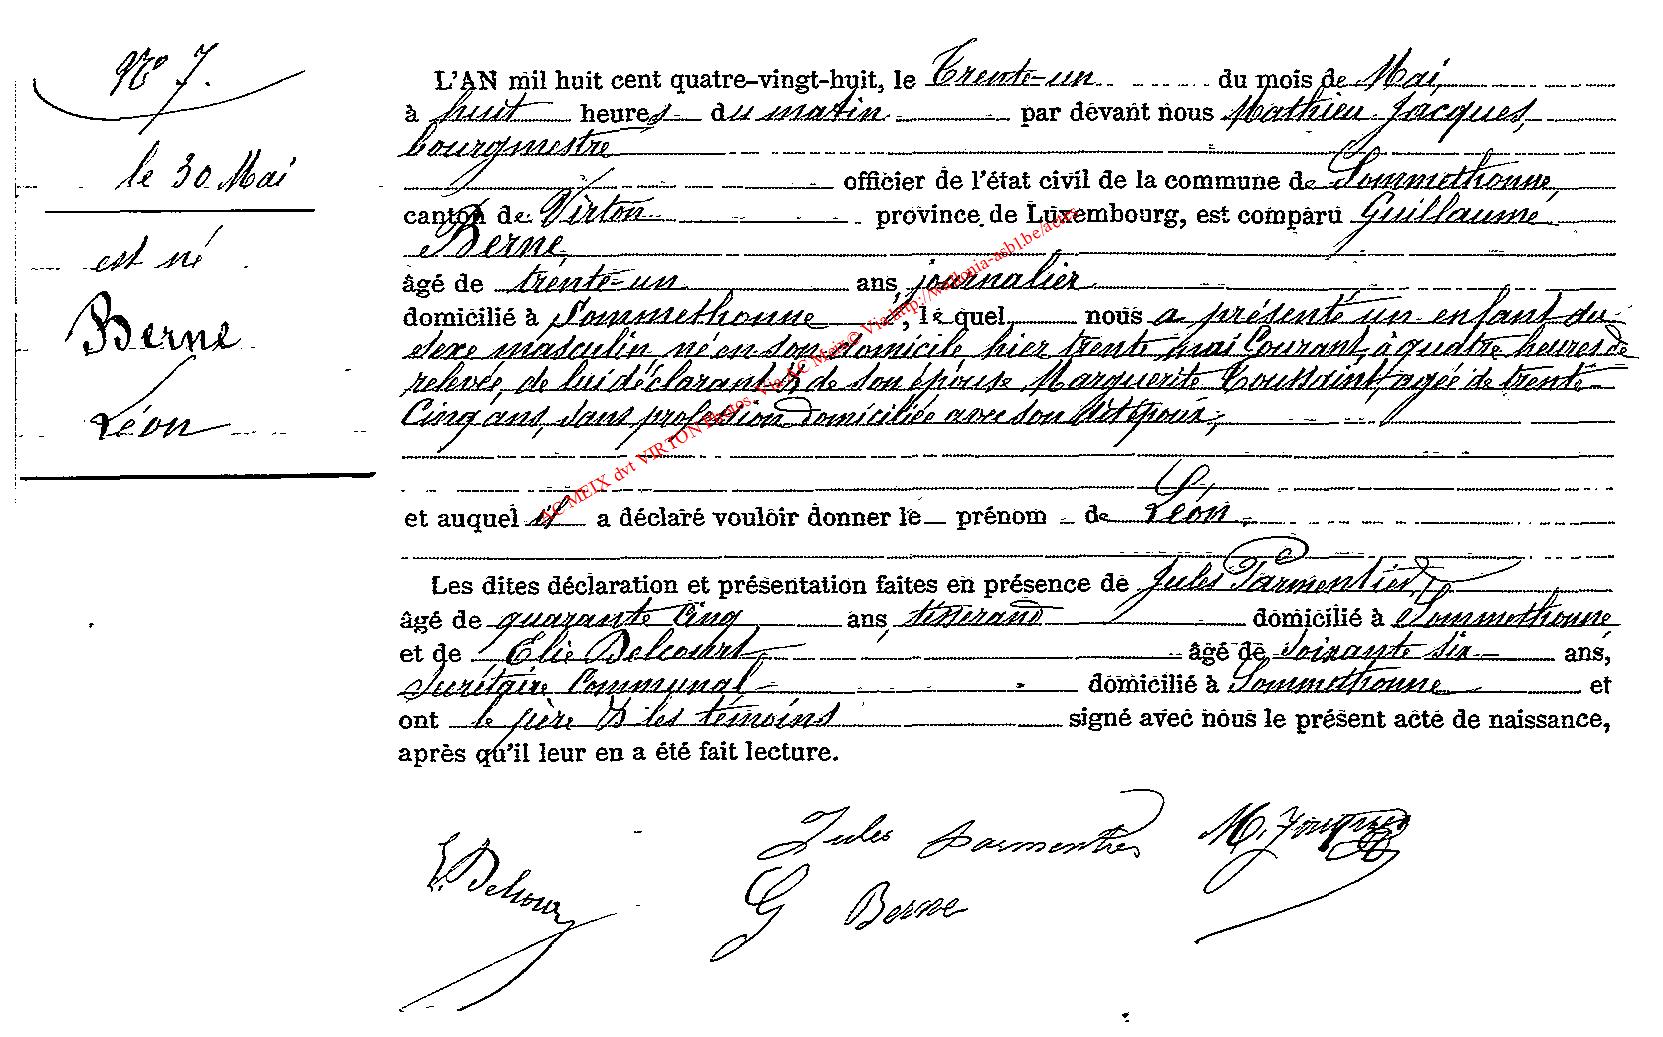 Nº 7.
le 30 Mai
est né
Berne
Léon
L'AN mil huit cent quatre-vingt-huit, le Trente-un du mois de Mai,
à huit heures du matin par devant nous Mathieu Jacques,
bourgmestre
officier de l'état civil de la commune de Sommethonne,
canton de Virton province de Luxembourg, est comparu Guillaume
Berne,
âgé de trente-un ans, journalier
domicilié à Sommethonne, lequel nous a présenté un enfant du
sexe masculin né en son domicile hier trente mai Courant, à quatre heures de
relevée, de lui déclarant & de son épouse Marguerite Toussaint, agée de trente-
Cinq ans, sans profession domiciliée avec son dit époux,
et auquel il a déclaré vouloir donner le prénom de Léon.
Les dites déclaration et présentation faites en présence de Jules Parmentier,
âgé de quarante Cinq ans, tisserand domicilié à Sommethonne
et de Elie Delcourt, âgé de soixante six ans,
Secrétaire Communal domicilié à Sommethonne et
ont le père & les témoins signé avec nous le présent acte de naissance,
après qu'il leur en a été fait lecture.
Jules parmentier
G Berne
AC MEIX dvt VIRTON Photos. Via AC Meix © Via http://wallonia-asbl.be/actes